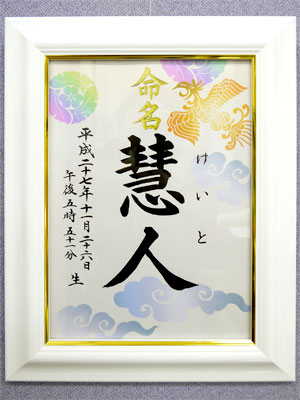 命名
慧人
けいと
平成二十七年十一月二十六日
午後五時五十一分
生